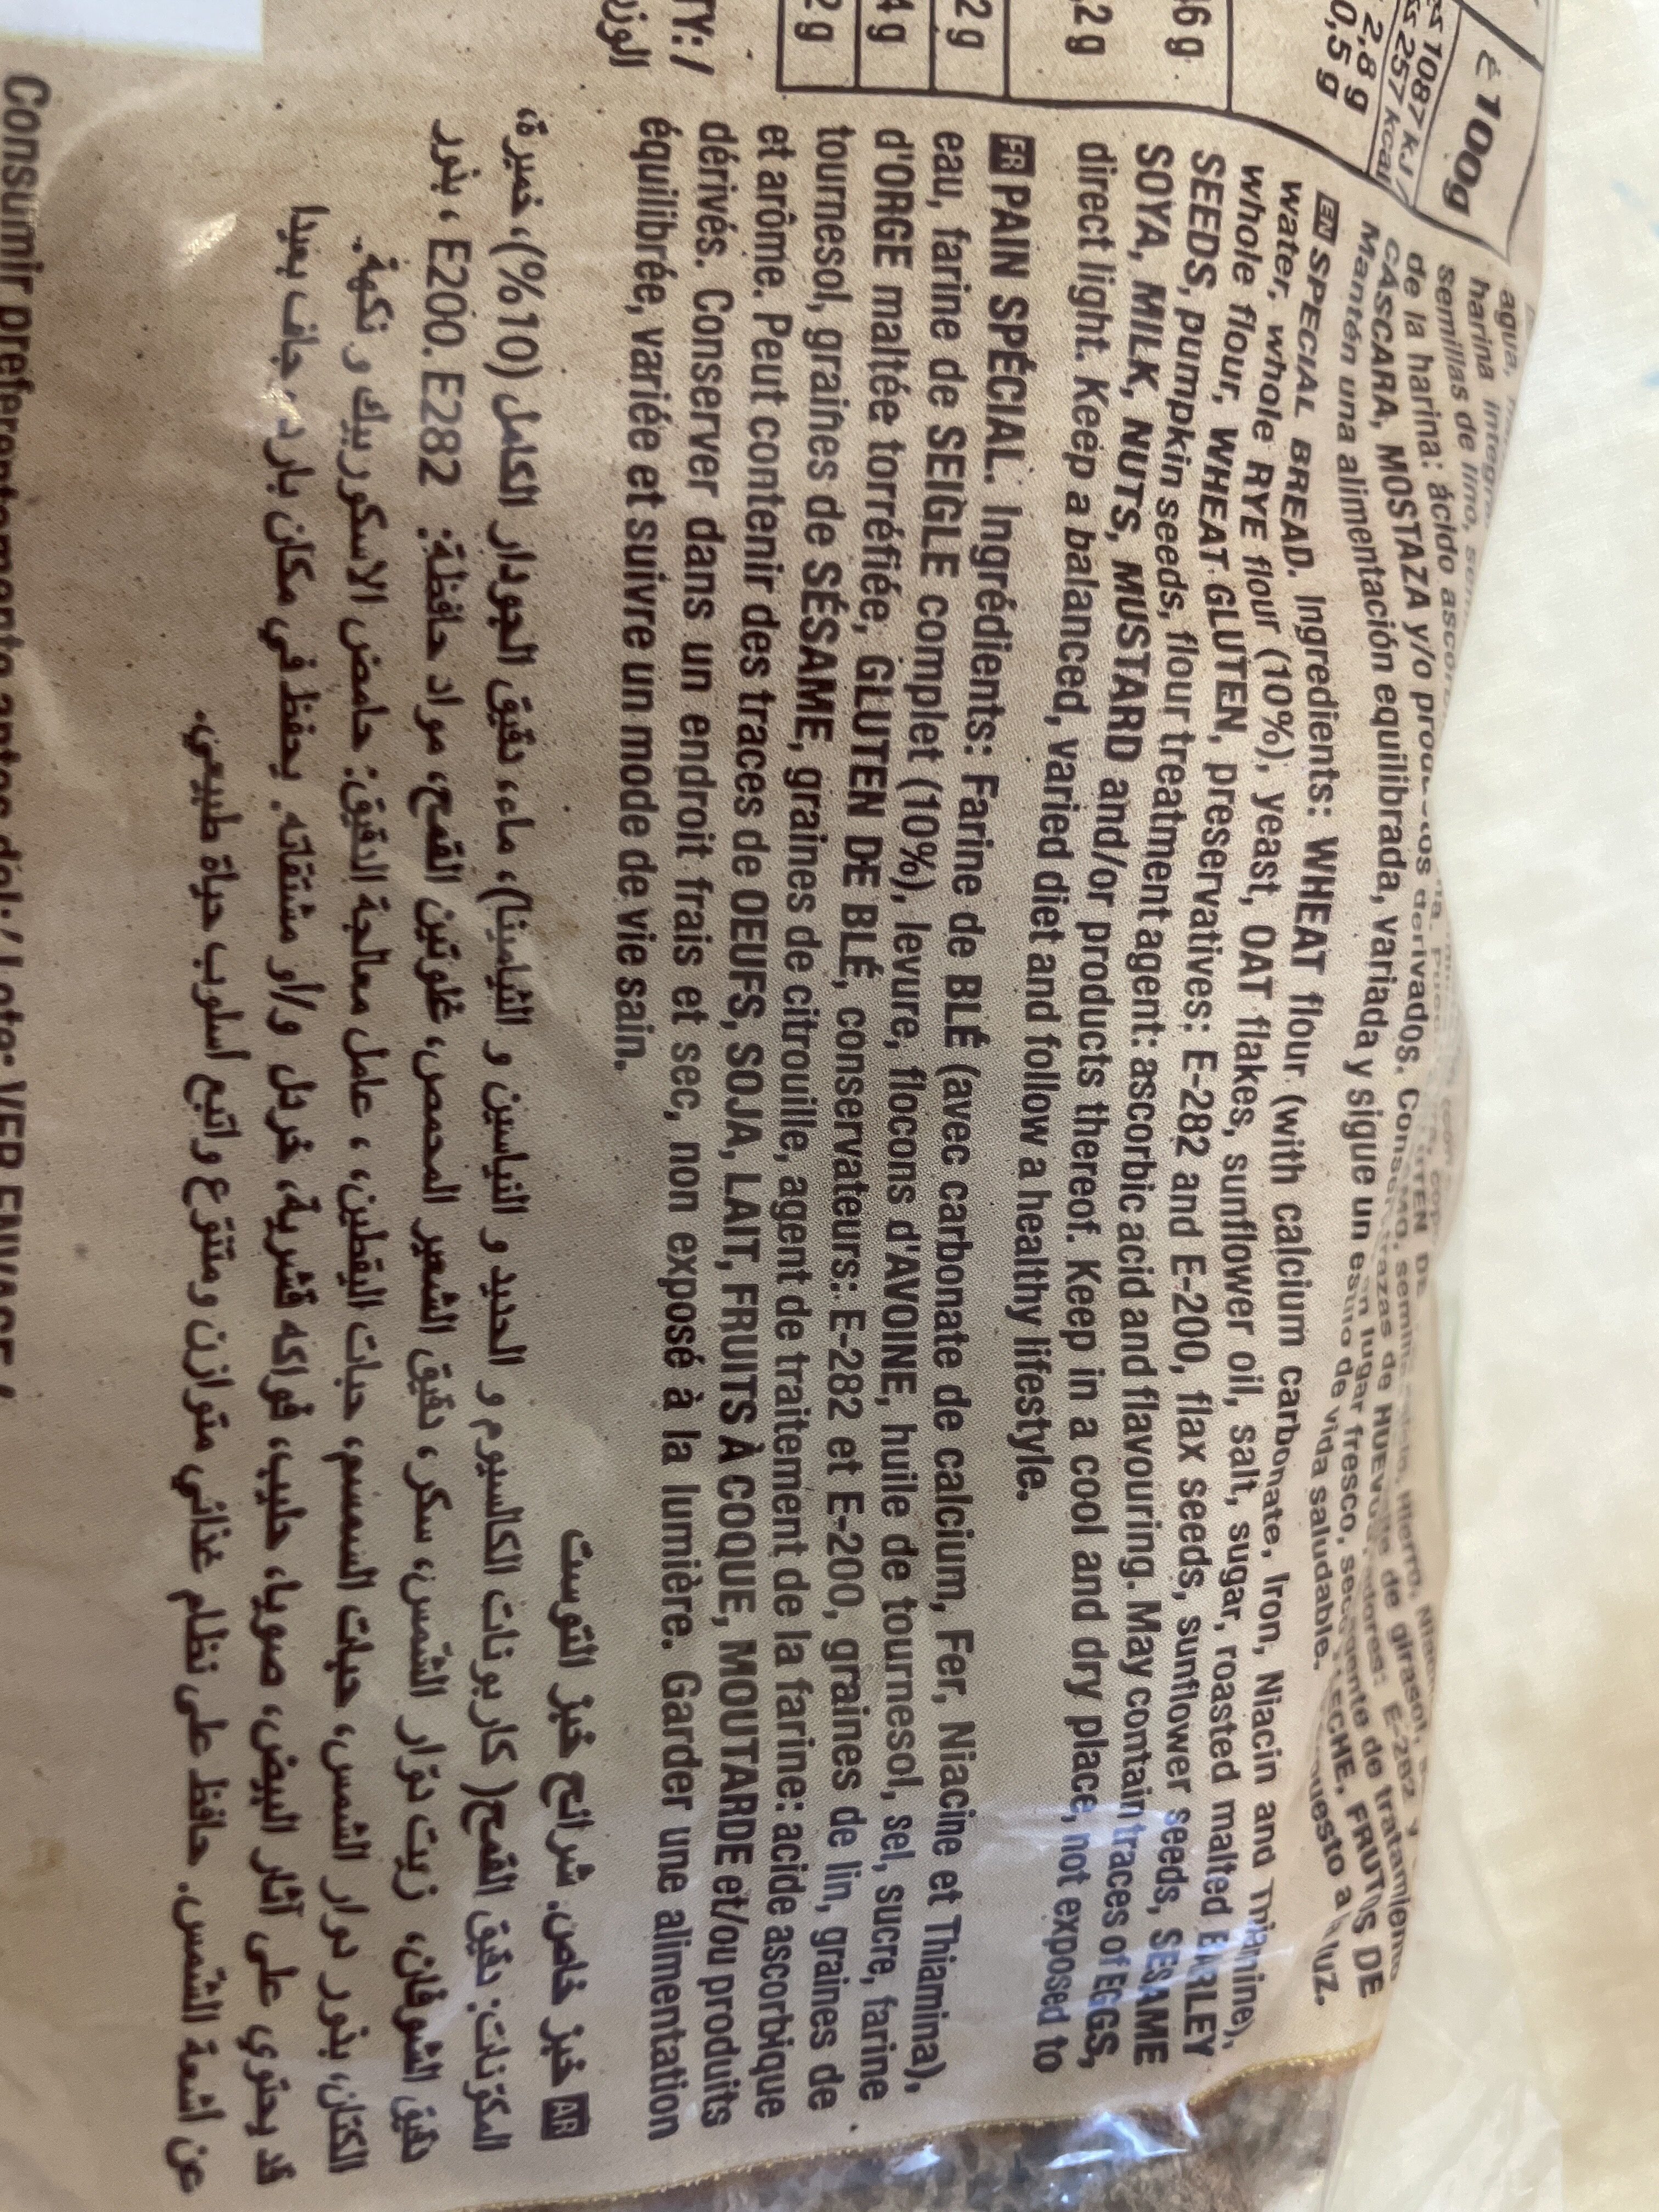 100g
1087 kJ /
257 kcal
2,8 g
0,5 g
6 g
2 g
2 g
4 g
2 g
TY: /
الوزن
agua,
harina
semillas de lino,
de la harina: ácido
CÁSCARA, MOSTAZA y/o derivados.
Mantén una alimentación equilibrada, variada y sigue un estilo de vida saludable.
EN SPECIAL BREAD. Ingredients: WHEAT flour (with calcium carbonate, Iron, Niacin and Thiamine),
water, whole RYE flour (10%), yeast, OAT flakes, sunflower oil, salt, sugar, roasted malted BARLEY
whole flour, WHEAT GLUTEN, preservatives: E-282 and E-200, flax seeds, sunflower seeds, SESAME
SEEDS, pumpkin seeds, flour treatment agent: ascorbic acid and flavouring. May contain traces of EGGS,
SOYA, MILK, NUTS, MUSTARD and/or products thereof. Keep in a cool and dry place, not exposed to
direct light. Keep a balanced, varied diet and follow a healthy lifestyle.
FR PAIN SPÉCIAL. Ingrédients: Farine de BLÉ (avec carbonate de calcium, Fer, Niacine et Thiamina),
eau, farine de SEIGLE complet (10%), levure, flocons d'AVOINE, huile de tournesol, sel, sucre, farine
d'ORGE maltée torréfiée, GLUTEN DE BLÉ, conservateurs: E-282 et E-200, graines de lin, graines de
tournesol, graines de SÉSAME, graines de citrouille, agent de traitement de la farine: acide ascorbique
et arôme. Peut contenir des traces de OEUFS, SOJA, LAIT, FRUITS À COQUE, MOUTARDE et/ou produits
dérivés. Conserver dans un endroit frais et sec, non exposé à la lumière. Garder une alimentation
équilibrée, variée et suivre un mode de vie sain.
AR خبز خاص. شرائح خبز التوست
المكونات: دقيق القمح( كاربونات الكالسيوم و الحديد و النياسين و الثيامينا)، ماء، دقيق الجودار الكامل (10%)، خميرة،
دقيق الشوفان، زيت دوّار الشمس، سكر، دقيق الشعير المحمص، غلوتين القمح، مواد حافظة: E200. E282 ، بذور
الكتان، بذور دوار الشمس، حبات السمسم، حبات اليقطين، ، عامل معالجة الدقيق: حامض الاسكوربيك و نكهة.
قد يحتوي على آثار البيض، صويا، حليب، فواكه قشرية، خردل و/أو مشتقاته. يحفظ في مكان بارد، جاف بعيدا
عن اشعة الشمس. حافظ على نظام غذائي متوازن ومتنوع واتبع أسلوب حياة طبيعي.
Consumir preferentemente antes del:/ Lote: VER ENVASE /